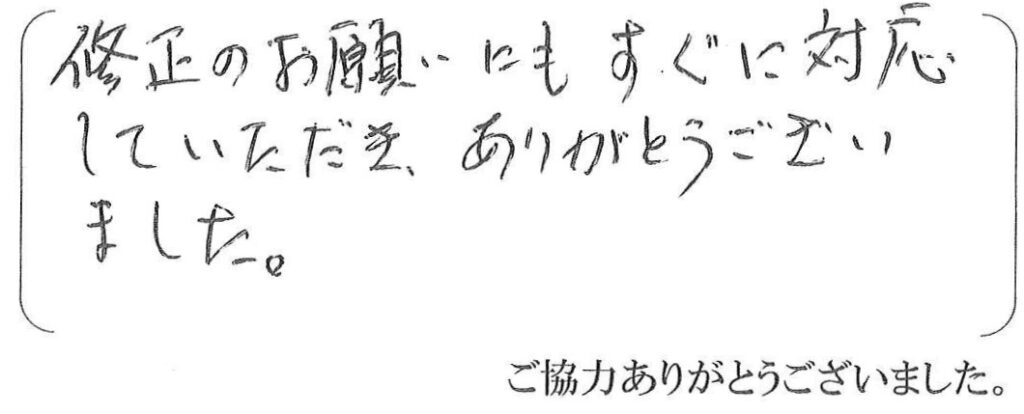 修正のお願いにもすぐに対応
していただき、ありがとうござい
ました。
ご協力ありがとうございました。